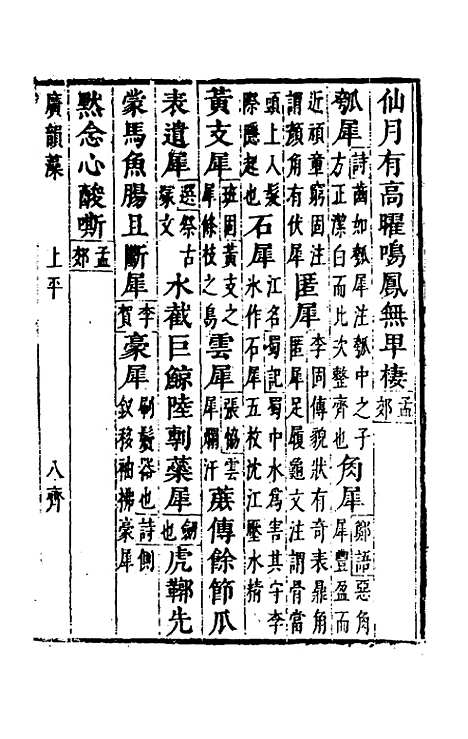 仙月有高曜鳴鳳無卑棲孟郊
瓠犀詩齒如瓠犀注瓠中之子方正潔白而比次整齊也角犀鄭語惡角犀豐盈而
近頑童窮固注謂顏角有伏犀匿犀李固傳貌狀有奇表鼎角匿犀足履龜文注謂骨當
頭上入髮際隱起也石犀江名蜀記蜀中水為害其守李氷作石犀五枚沈江壓水精
黃支犀班固黃支之犀條枝之鳥雲犀張協雲犀爛汗蔗傳餘節瓜
表遺犀選祭古冢文水截巨鯨陸剸犀劍也虎鞹先
蒙馬魚腸且斷犀李賀豪犀刷鬢器也詩側釵移袖拂豪犀
黙念心酸嘶孟郊
廣韻藻 上平 八齊